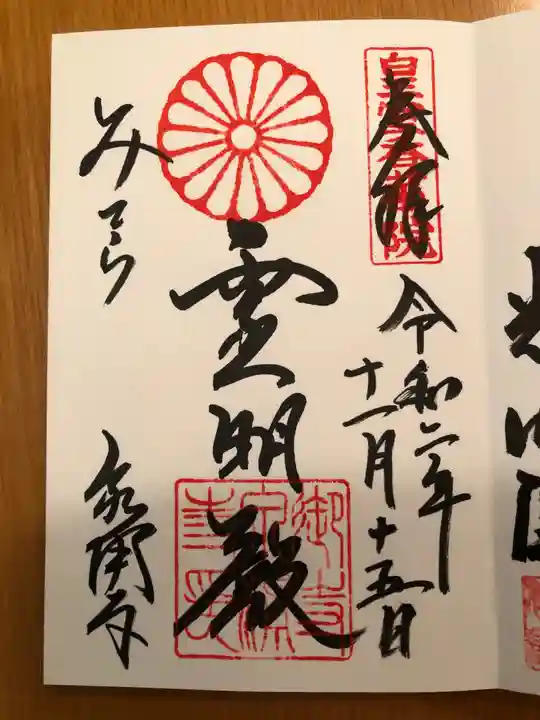 皇室香華院
奉拝
令和二年
十一月十五日
霊明殿
みてら
泉涌寺